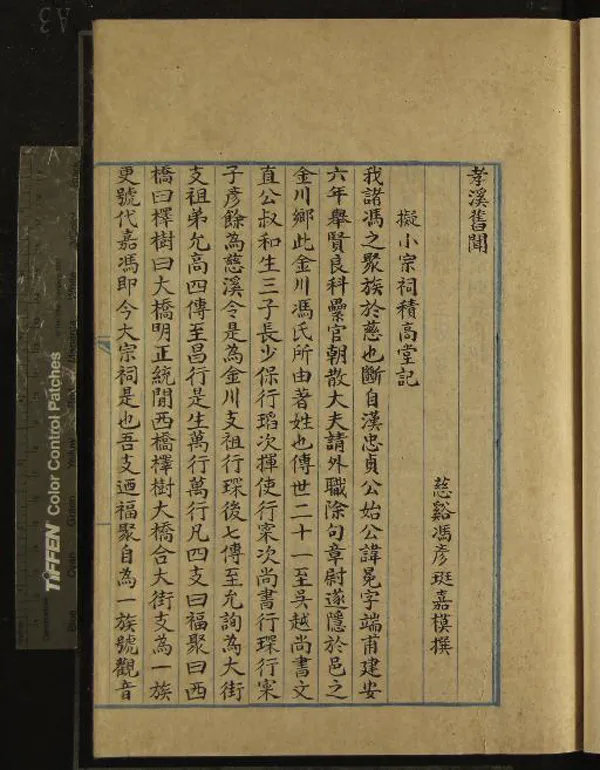 孝溪舊聞
慈谿馮彥珽嘉模撰
擬小宗祠積高堂記
我諸馮之聚族於慈也斷自漢忠貞公始公諱冕字端甫建安
六年舉賢良科纍官朝散大夫請外職除句章尉遂隱於邑之
金川鄉此金川馮氏所由著姓也傳世二十一至吳越尚書文
直公叔和生三子長少保行瑫次揮使行寀次尚書行琛行寀
子彥餘為慈溪令是為金川支祖行琛後七傳至允詢為大街
支祖弟允高四傳至昌行是生萬行萬行凡四支曰福聚曰西
橋曰檡樹曰大橋明正統閒西橋檡樹大橋合大街支為一族
更號代嘉馮即今大宗祠是也吾支迺福聚自為一族號觀音
TIFFEN Color Control Patches
A3